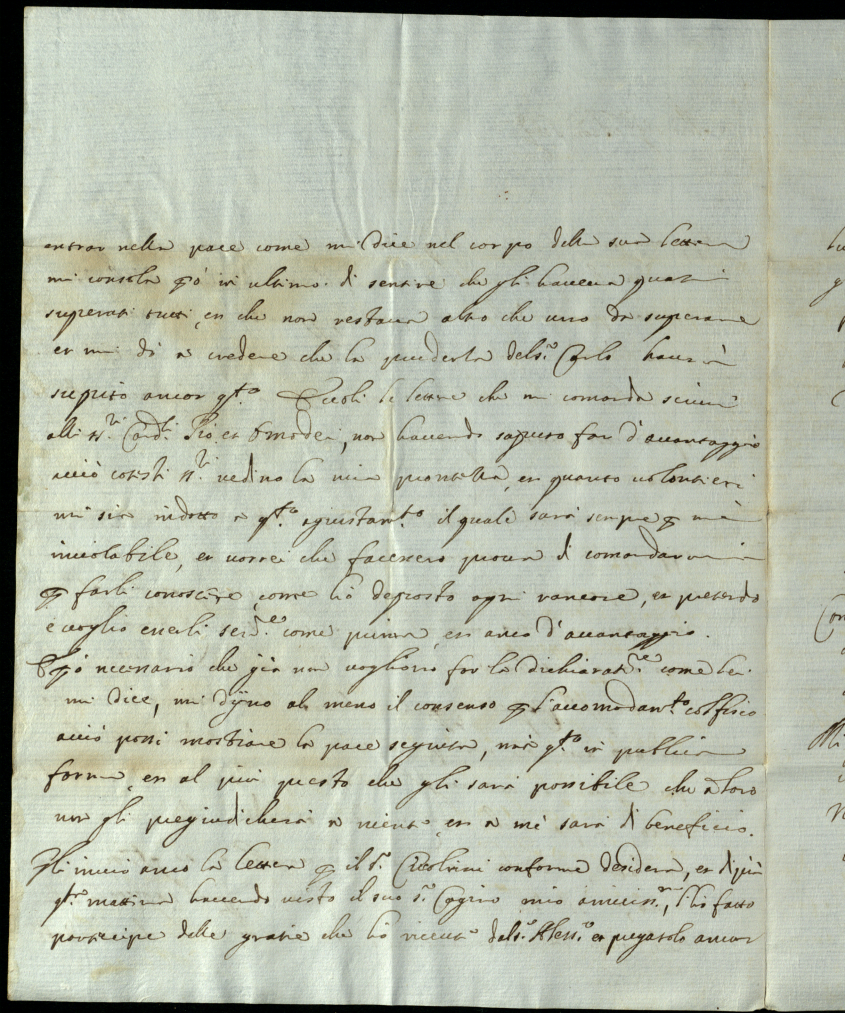 entrar nella pace come mi dice nel corpo della sua lettera
mi consola però in ultimo di sentire che gli haveva quasi
superati tutti, et che non restava altro che uno da superare
et mi dà a credere che la prudenza del s.r Carlo haverà
supito ancor q.to Eccoli le lettere che mi comanda scrivere
alli ss.ri Card.li Pio, et Omodei, non havendo saputo far d'avantaggio
acciò cotesti ss.ri vedino la mia prontezza, et quanto volontieri
mi sia indotto a q.to agiustam.to il quale sarà sempre p mè
inviolabile, et vorrei che facessero prova di comandarmi
p farli conoscere come hò deposto ogni rancore, et pretendo
e voglio esserli ser.re come prima, et anco d'avantaggio.
È però necessario che già non vogliono far la dichiarat.ne come lei
mi dice, mi dijno al meno il consenso p l'accomodam.to col fisco
acciò possi mostrare la pace seguita, mà q.to in publica
forma, et al più presto che gli sarà possibile che a loro
non gli pregiudicherà a niente et a mè sarà di beneficio.
Gli invio anco la lettera p il s.r conforme desidera, et di più
q.ta mattina havendo visto il suo s.r Cugino mio amiciss.mo, l'hò fatto
partecipe delle gratie che hò ricevute dal s.r Aless.o et pregatolo ancor